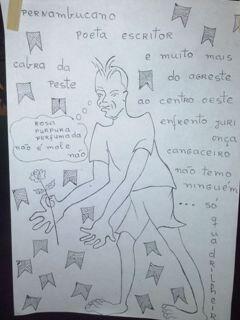 PERNAMBUCANO
POETA ESCRITOR
CABRA DA
PESTE
E MUITO MAIS
DO AGRESTE
AO CENTRO OESTE
ENFRENTO JURI
ONÇA
CANGACEIRO
NÃO TEMO
NINGUÉM
... SÓ
QUADRILHEIRO
ROSA
PURPURA
PERFUMADA
NÃO É MOTE
NÃO